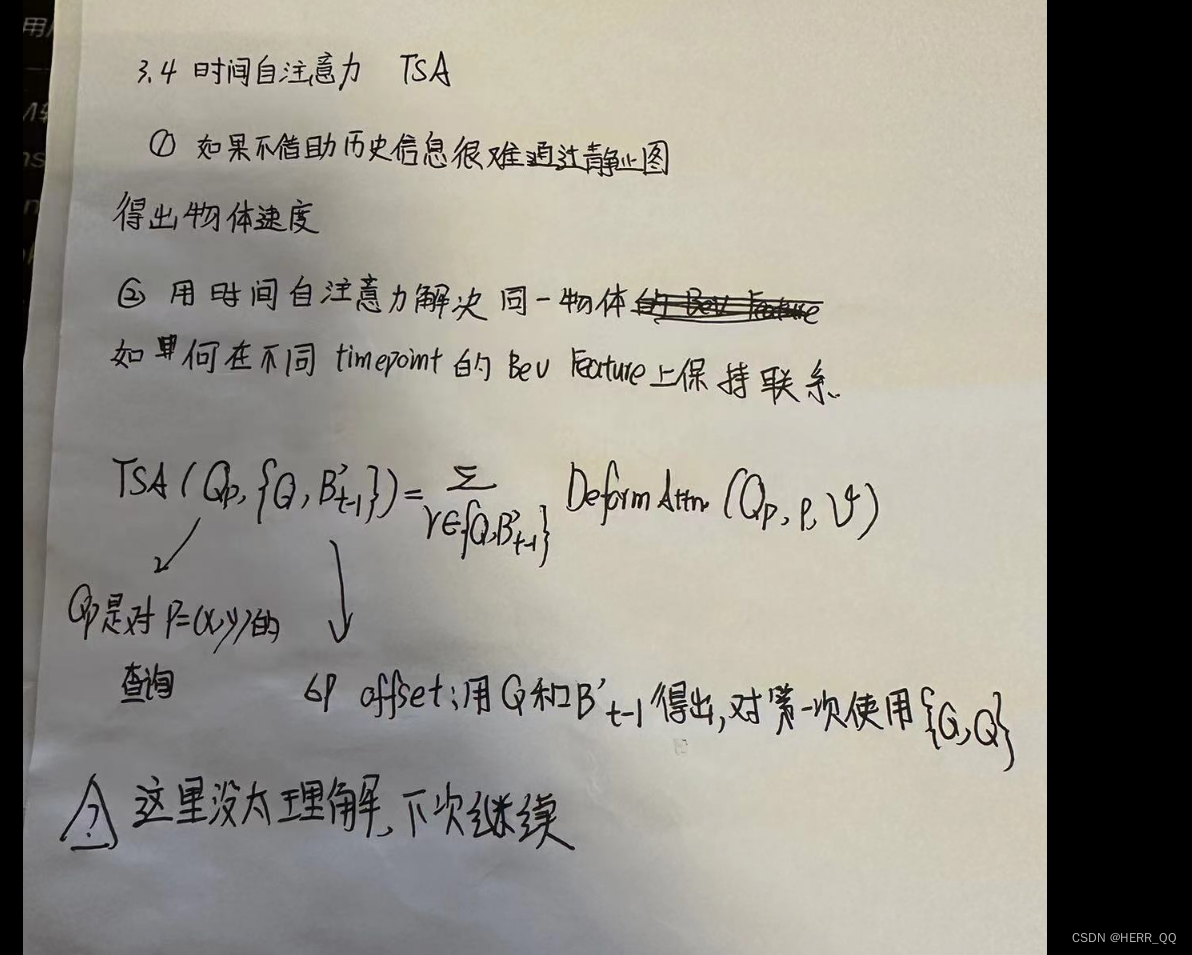 3.4 时间自注意力 TSA
① 如果不借助历史信息很难通过静止图
得出物体速度
② 用时间自注意力解决同一物体
如何在不同 timepoint 的 Bev Feature上保持联系.
TSA(Qp,{Q,B't-1})= Σ V∈{Q,B't-1} Deform Attn (Qp, p, V)
Qp是对 P=(x,y)的
查询
offset:用Q和B't-1得出,对第一次使用{Q,Q}
? 这里没太理解,下次继续
CSDN @HERR_QQ